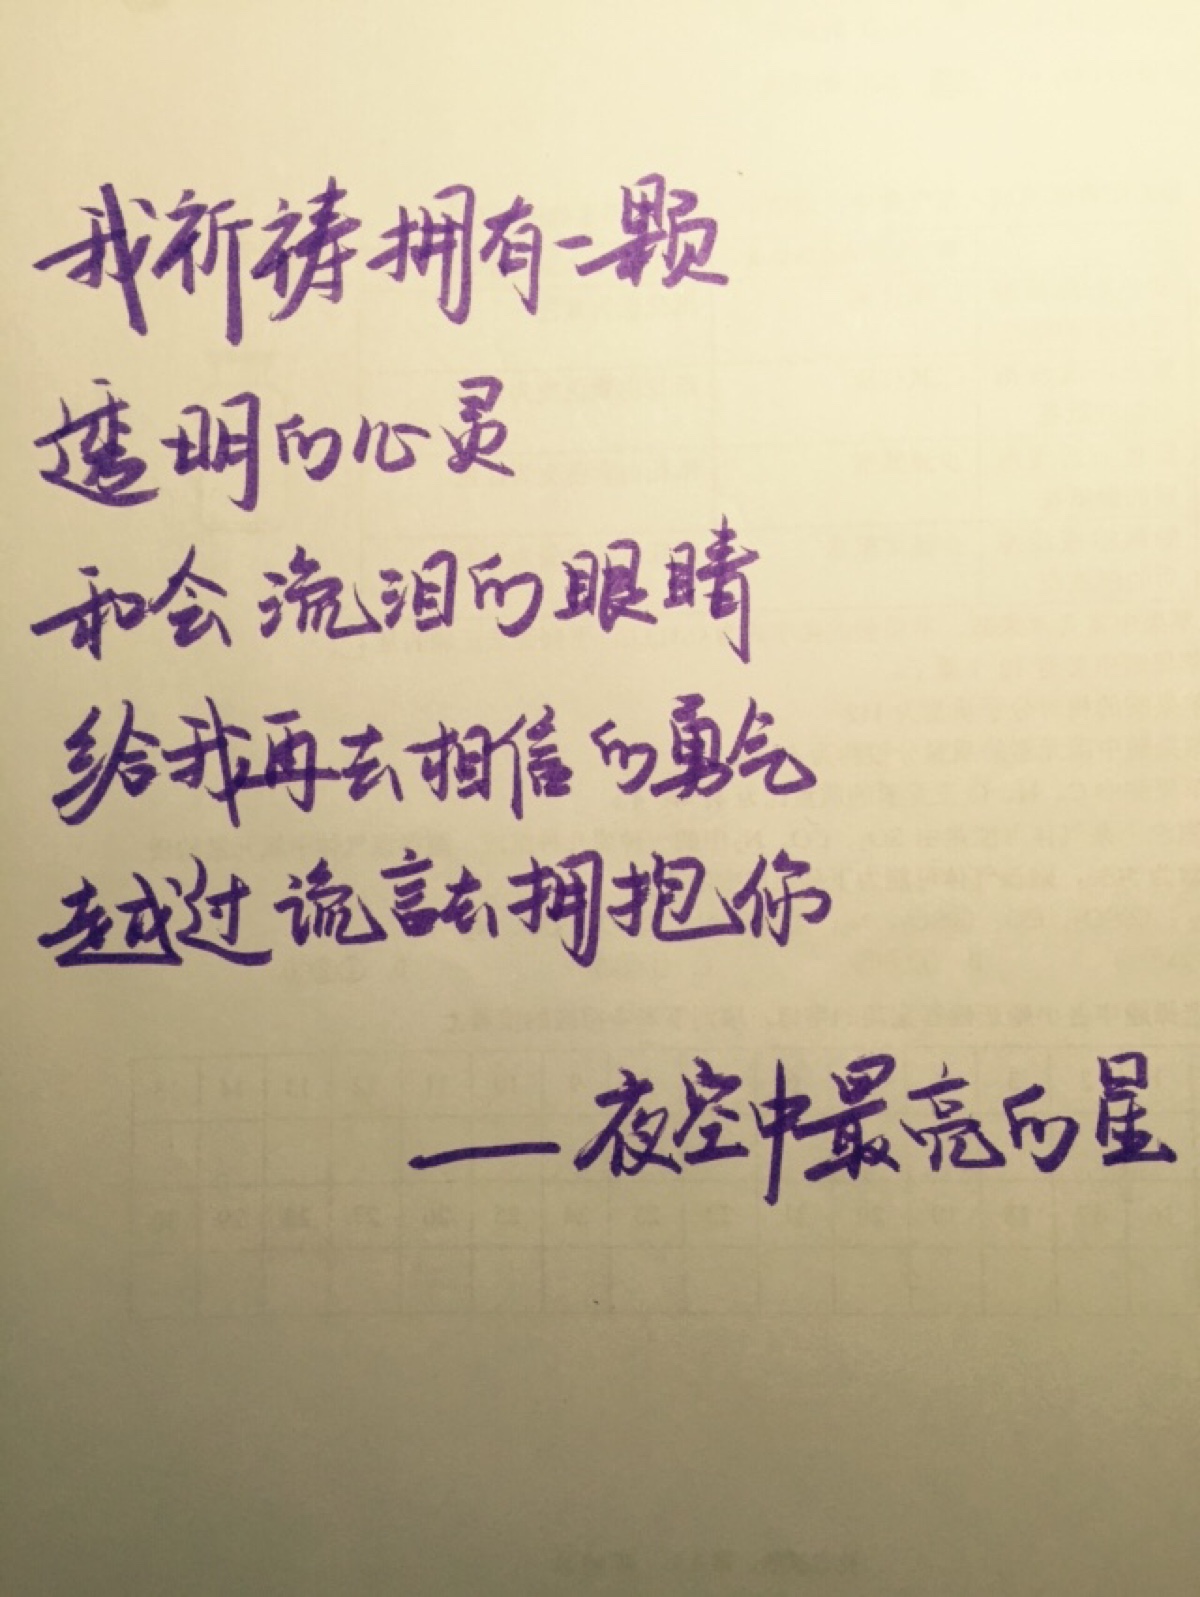 我祈祷拥有一颗
透明的心灵
和会流泪的眼睛
给我再去相信的勇气
越过谎言去拥抱你
——夜空中最亮的星